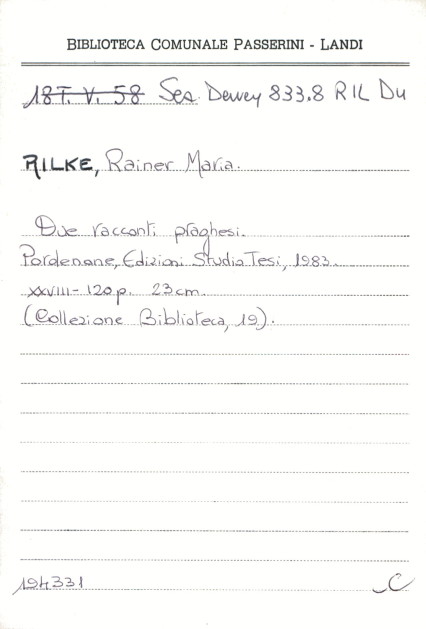 BIBLIOTECA COMUNALE PASSERINI - LANDI
18T. V. 58 Sez. Dewey 833.8 RIL Du
RILKE, Rainer Maria.
Due racconti praghesi.
Pordenone, Edizioni Studio Tesi, 1983.
XXVIII-120 p. 23 cm.
(Collezione Biblioteca, 19).
194331 C